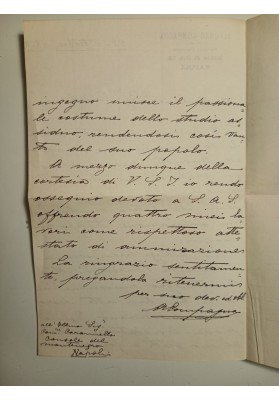 ingegno unisce il passiona-
le costume dello studio as-
siduo, rendendosi così van-
to del suo popolo.
A mezzo dunque della
cortesia di V. S. I. io rendo
ossequio devoto a S. A. S.
offrendo quattro miei la-
vori come rispettoso atte-
stato di ammirazione.
La ringrazio sentitamen-
te, pregandola ritenermi
per suo dev. ed obb
Ill.mo Sig.
Console del
Montenegro
Napoli